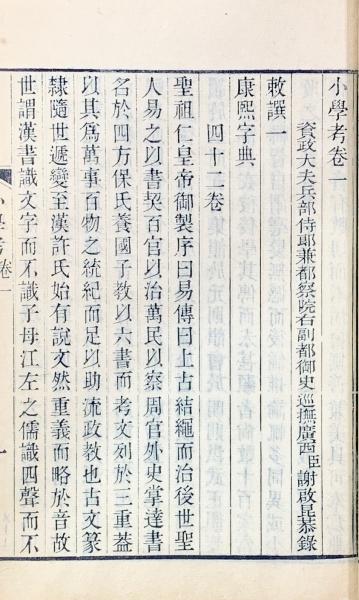 小學考卷一
資政大夫兵部侍郎兼都察院右副都御史巡撫廣西臣謝啟昆恭錄
敕譔一
康熙字典
四十二卷
聖祖仁皇帝御製序曰易傳曰上古結繩而治後世聖
人易之以書契百官以治萬民以察周官外史掌達書
名於四方保氏養國子教以六書而考文列於三重葢
以其爲萬事百物之統紀而足以助流政教也古文篆
隸隨世遞變至漢許氏始有說文然重義而略於音故
世謂漢書識文字而不識子母江左之儒識四聲而不
小學考卷一
一